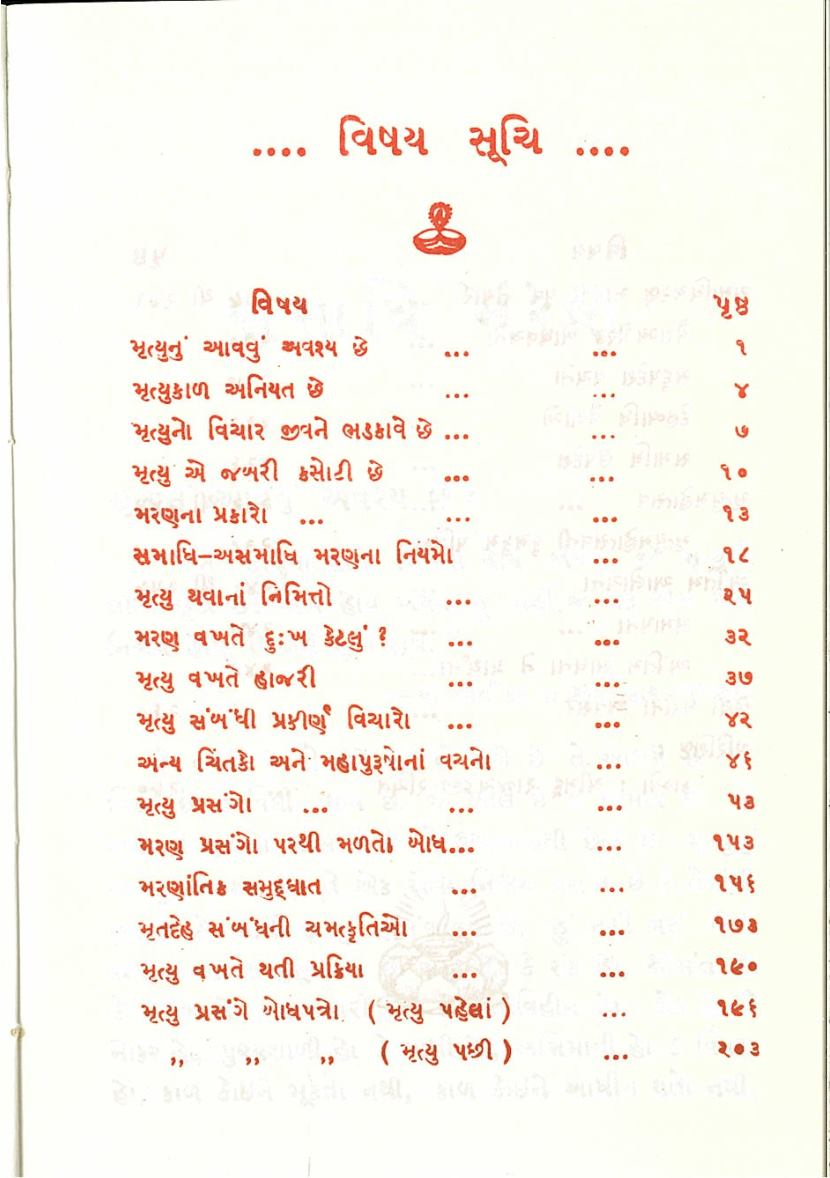 .... વિષય સૂચિ ....
વિષય પૃષ્ઠ
મૃત્યુનું આવવું અવશ્ય છે ... ... ૧
મૃત્યુકાળ અનિયત છે ... ... ૪
મૃત્યુનો વિચાર જીવને ભડકાવે છે ... ... ૭
મૃત્યુ એ જબરી કસોટી છે ... ... ૧૦
મરણના પ્રકારો ... ... ... ૧૩
સમાધિ–અસમાધિ મરણના નિયમો ... ૧૮
મૃત્યુ થવાનાં નિમિત્તો ... ... ૨૫
મરણ વખતે દુઃખ કેટલું ? ... ... ૩૨
મૃત્યુ વખતે હાજરી ... ... ૩૭
મૃત્યુ સંબંધી પ્રકીર્ણ વિચારો ... ... ૪૨
અન્ય ચિંતકો અને મહાપુરૂષોનાં વચનો ... ૪૬
મૃત્યુ પ્રસંગો ... ... ... ૫૩
મરણ પ્રસંગો પરથી મળતો બોધ... ... ૧૫૩
મરણાંતિક સમુદ્ઘાત ... ... ૧૫૬
મૃતદેહ સંબંધની ચમત્કૃતિઓ ... ... ૧૭૩
મૃત્યુ વખતે થતી પ્રક્રિયા ... ... ૧૯૦
મૃત્યુ પ્રસંગે બોધપત્રો ( મૃત્યુ પહેલાં ) ... ૧૯૬
,, ,, ,, ( મૃત્યુ પછી ) ... ૨૦૩